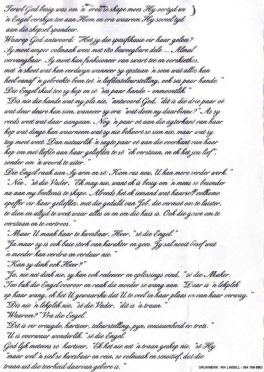 Terwyl God besig was om 'n vrou te skape moes Hy oortyd en
'n Engel verskyn toe aan Hom en vra waarom Hy soveel tyd
aan die skepsel spandeer.
Waarop God antwoord: "Het sy die spesifikasie vir haar gesien?
Sy moet amper volmaak wees met 180 beweegbare dele ... Almal
vervangbaar. Sy moet kan funksioneer van swart tee en oorskietkos,
met 'n skoot wat kan verdwyn wanneer sy opstaan 'n soen wat alles kan
heel vanaf 'n gebreekte been tot 'n liefdesteleurstelling, en ses paar hande."
Die Engel skud toe sy kop en sê "ses paar hande - onmoontlik."
"Dis nie die hande wat my pla nie," antwoord God, "dit is die drie paar oë
wat deur deure kan sien, wanneer sy vra 'wat doen my daarbinne?' As sy
reeds weet wat daar aangaan. Nog 'n paar oë aan die agterkant van haar
kop wat dinge kan waarneem wat sy nie behoort te sien nie, maar wat sy
tog moet weet. Dan natuurlik 'n sagte paar oë aan die voorkant van haar
kop om met liefde aan haar geliefdes te sê 'ek verstaan, en ek het jou lief'
sonder om 'n woord te uiter."
Die Engel raak aan Sy arm en sê: Kom rus nou, U kan môre verder werk."
"Nee," sê die Vader, "Ek mag nie, want ek is besig om 'n mens te
na aan my beeltenis te skape. Alreeds het ek iemand wat haarself
opoffer vir haar geliefdes, met die geduld van Job, die vermoë om te luister,
te dien en altyd te weet waar alles in en om die huis is. Ook die gawe om te
verstaan en te vertroos."
"Maar U maak haar te kwesbaar, Heer," sê die Engel
"Ja maar sy is ook baie sterk van karakter en gees. Jy sal nooit besef wat
'n moeder kan verdra en verduur nie.
"Kan sy dink ook Heer?"
"Ja, nie net dink nie, sy kan ook redeneer en oplossings vind," sê die Maker.
Toe buk die Engel vooroor en raak die moeder se wang aan. "Daar is 'n lekplek
op haar wang, ek het U gewaarsku dat U te veel in haar plaas en van haar verwag."
"Dis nie 'n lekplek nie," sê die Vader, "dit is 'n traan."
"Waarom?" Vra die Engel.
"Dit is vir vreugde, hartseer, teleurstelling, pyn, eensaamheid en trots."
"U is voorwaar wonderlik" sê die Engel.
God lyk meteens so hartseer. "Ek het nie aan 'n traan geskep nie," sê Hy
"maar wat 'n siel so kwesbaar en rein, so volmaak en sensitief, dat die
traan uit die teerheid daarvan gebore is."